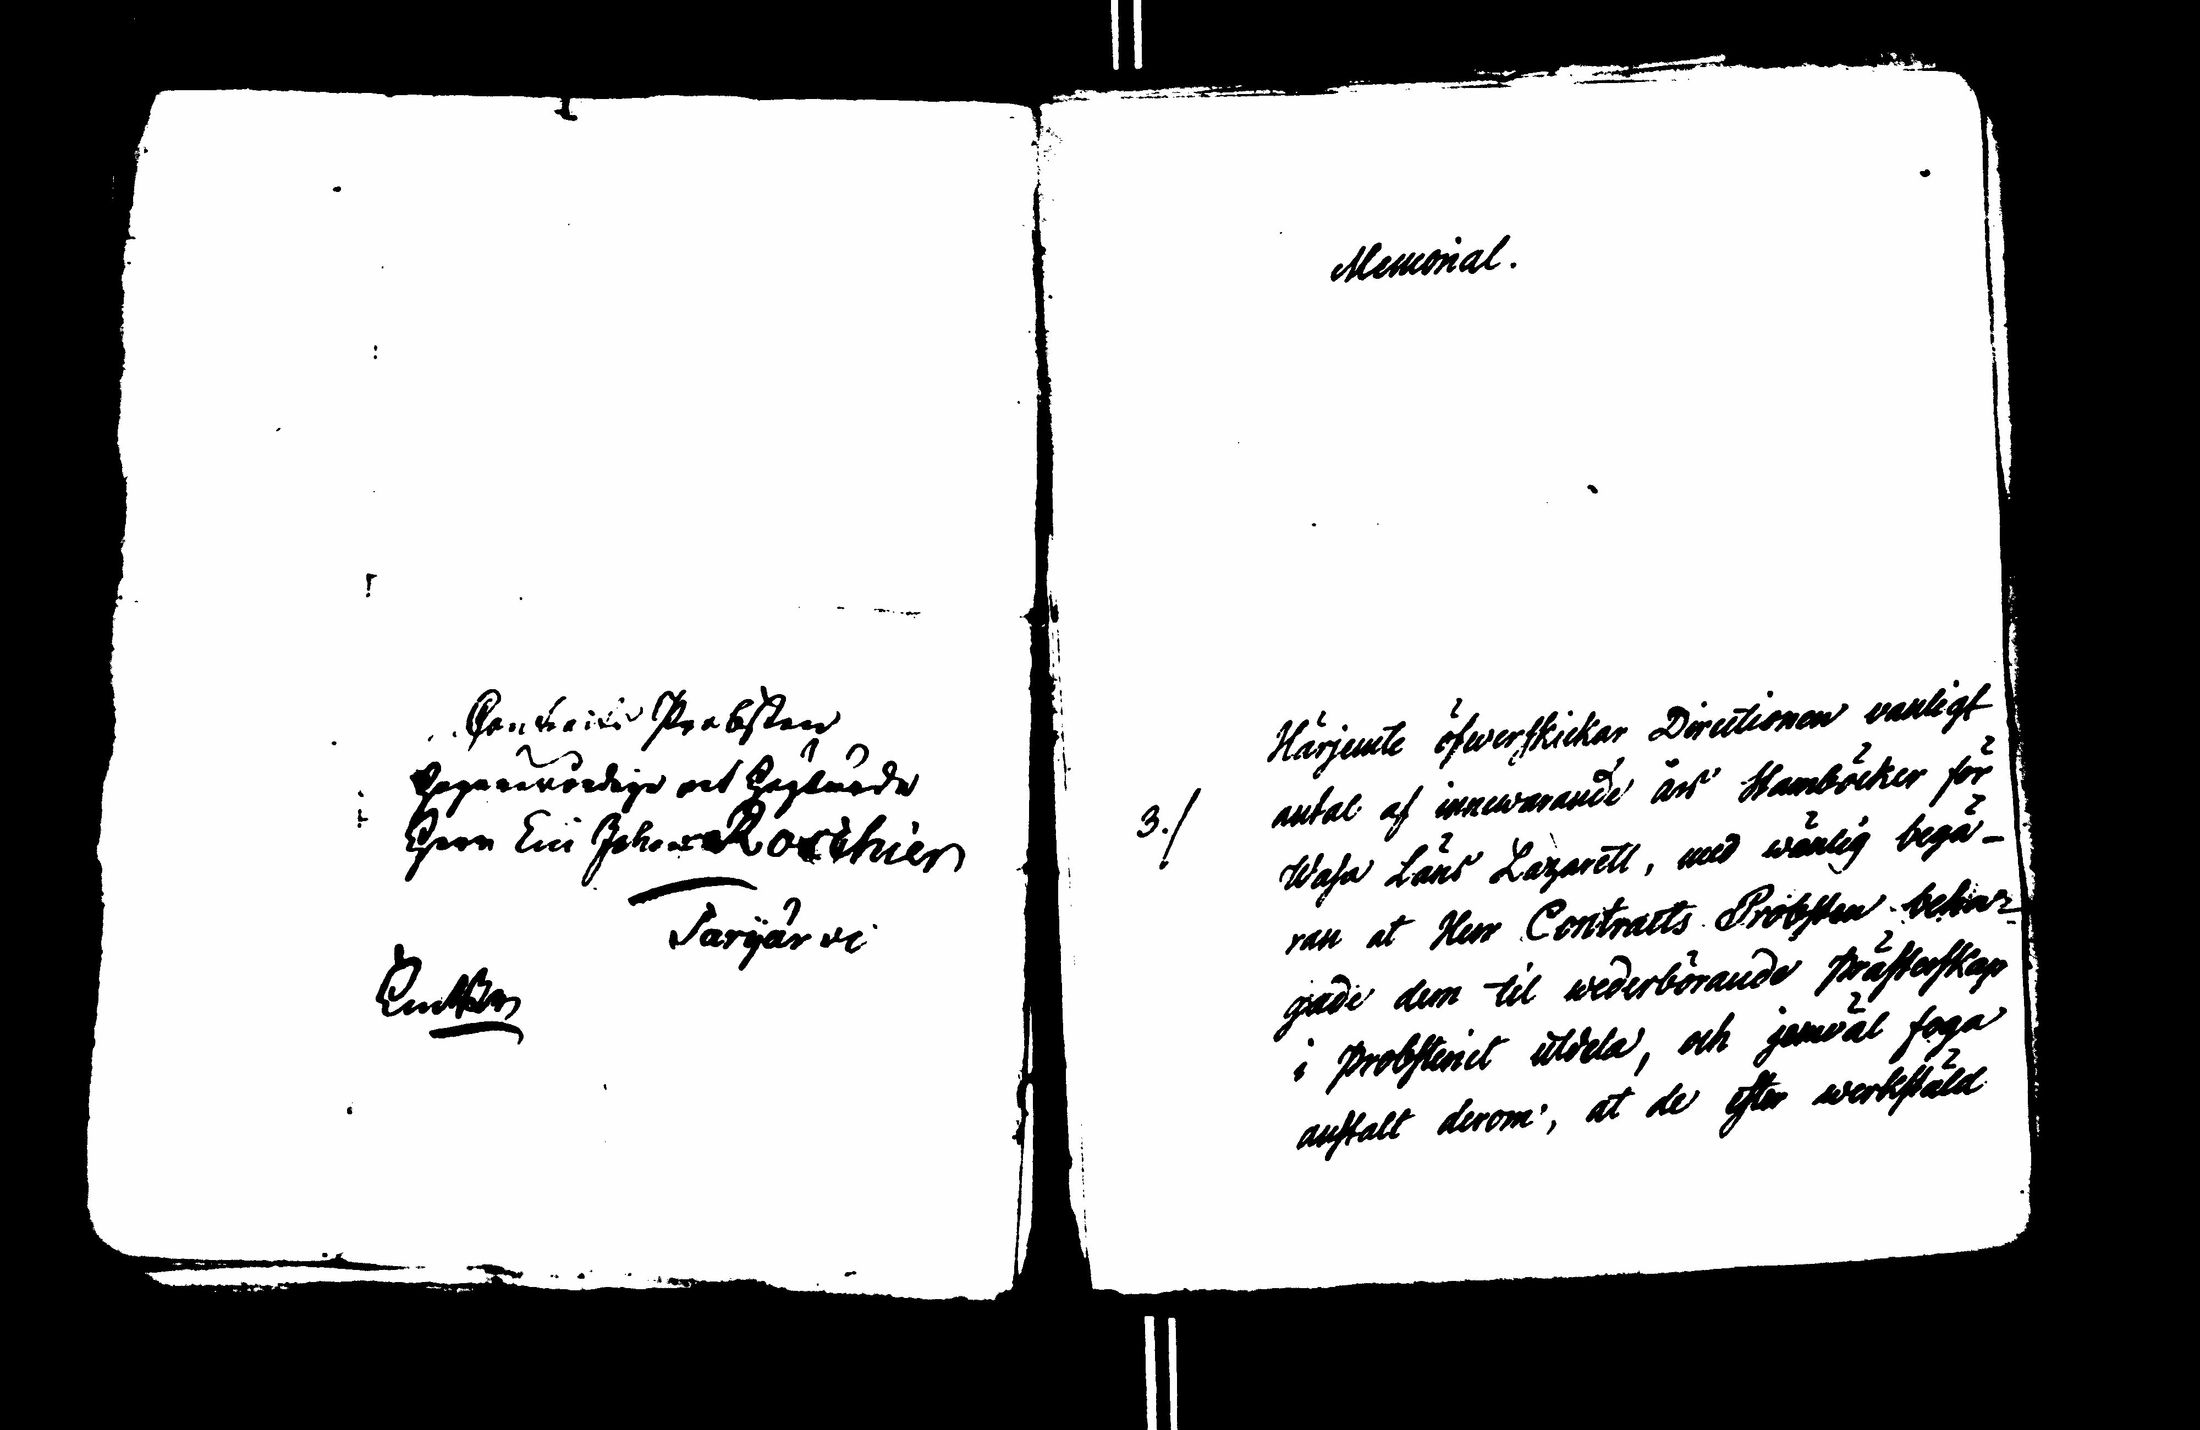 Contracts Probsten
Högärewördige och Höglärde
Herr Eric Johan Roschier
Saryärvi
Memorial.
Härjemte öfwerskickar Directionen vanligt
3./ antal af innewarande års Stamböcker för
Wasa Läns Lazarett, med wänlig begä-
ran at Herr Contracts Probsten behar
gade dem til wederbörande Prästerskap
i Probsteriet utdela, och jemväl foga
anstalt derom, at de efter werkstäld